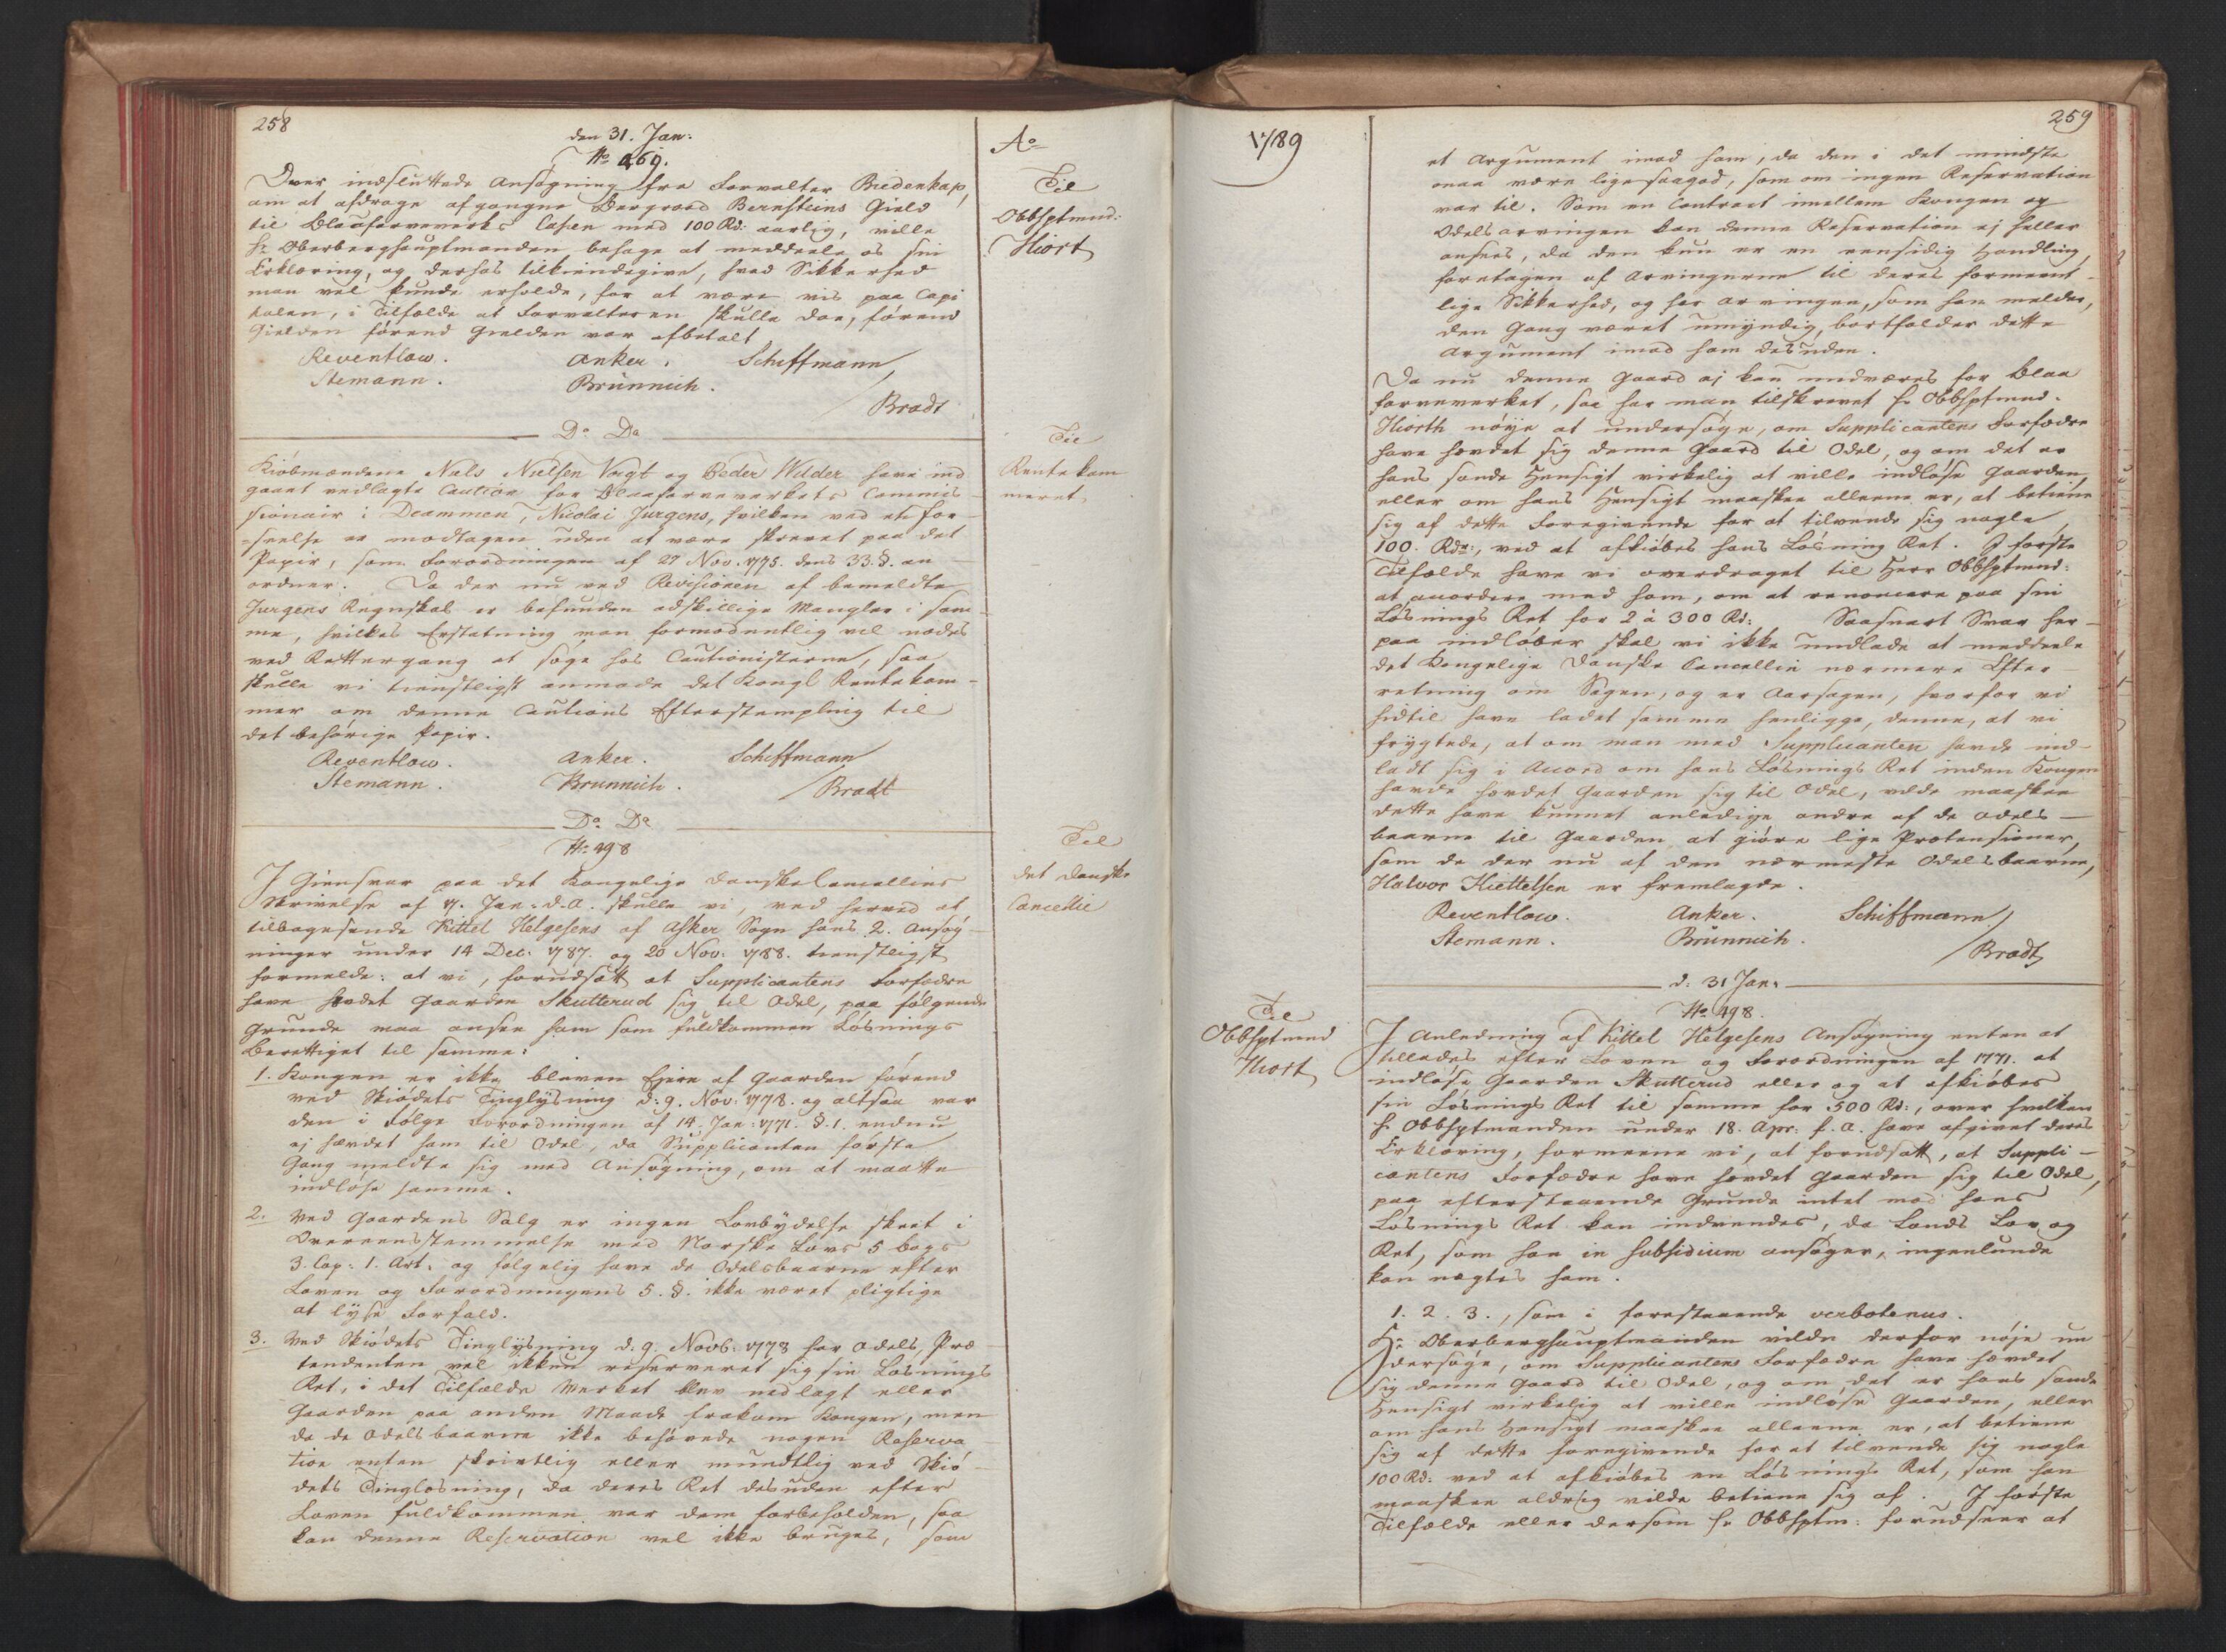 258
den 31. Jan:
No 469.
Over indsluttede Ansøgning fra Forvalter Bredenkap,
om at afdrage afgangne Bergraad Bernsteins Gield
til Blaafarveverks Casen med 100 Rd: aarlig, ville
Hr Oberberghauptmanden behage at meddeele os sin
Erklæring, og derhos tilkiendegive, hvad Sikkerhed
man vel kunde erholde, for at være vis paa Capi
talen, i Tilfælde at Forvalteren skulle døe, førend
Gielden førend Gielden var afbetalt
Reventlow. Anker. Schiffmann
Stemann. Brünnich.
Bradt
Do Do
Kiøbmændene Niels Nielsen Vogt og Peder Wilder have ind
gaaet vedlagte Caution for Blaafarveverkets Commis-
sionair i Drammen, Nicolai Jurgens, hvilken ved en For-
=seelse er modtagen uden at være skrevet paa det
Papir, som Forordningen af 27 Nov. 1775. dens 33. §. an-
ordner. Da der nu ved Revisionen af bemeldte
Jurgens Regnskab er befunden adskillige Mangler i sam-
me, hvilkes Erstatning man formodentlig vil nødes
ved Rettergang at søge hos Cautionisterne, saa
skulle vi tienstligst anmode det Kongl Rentekam-
mer om denne Cautions Efterstempling til
det behørige Papir.
Reventlow. Anker. Schiffmann
Stemann. Brunnich. Bradt
Do Do
No 498
I Giensvar paa det Kongelige Danske Cancellies
Skrivelse af 17. Jan: d. A. skulle vi, ved herved at
tilbagesende Kittel Helgesens af Asker Sogn hans 2. Ansøg-
ninger under 14 Dec: 1787. og 20 Nov: 1788. tienstligst
formelde: at vi, forudsatt at Supplicantens Forfædre
have hævdet Gaarden Skutterud sig til Odel, paa følgende
Grunde maa ansee ham som fuldkommen Løsnings
Berettiget til samme:
1. Kongen er ikke bleven Ejere af Gaarden førend
ved Skiødets Tinglysning d: 9. Nov: 1778. og altsaa var
den i Følge Forordningen af 14. Jan: 1771. §. 1. endnu
ej hævdet ham til Odel, da Supplicanten første
Gang meldte sig med Ansøgning, om at maatte
indløse samme.
2. Ved Gaardens Salg er ingen Lovbydelse skeet i
Overeensstemmelse med Norske Lovs 5 bogs
3. Cap: 1. Art. og følgelig have de Odelsbaarne efter
Loven og Forordningens 5. §. ikke været pligtige
at lyse Forfald.
3. Ved Skiødets Tinglysning d: 9. Novb: 1778 har Odels, Præ-
tendenten vel ikkun reserveret sig sin Løsnings
Ret, i det Tilfælde Verket blev nedlagt eller
Gaarden paa anden Maade frakom Kongen, men
da de Odelsbaarne ikke behøvede nogen Reserva-
tion enten skriftlig eller mundtlig ved Skiø-
dets Tinglæsning, da deres Ret desuden efter
Loven fuldkommen var dem forbeholden, saa
kan denne Reservation vel ikke bruges, som
Ao
Til
Obbhptmd:
Hiort
Til
Rentekam
meret
Til
det Danske
Cancellie
1789
259
et Argument imod ham, da den i det mindste
maa være lige saagod, som om ingen Reservation
var til. Som en Contract imellem Kongen og
Odelsarvingen kan denne Reservation ej heller
ansees, da den kun er en eensidig Handling,
foretagen af Arvingerne til deres formeent-
lige Sikkerhed, og har Arvingen, som han melder,
den Gang været umyndig, bortfalder dette
Argument imod ham desuden.
Da nu denne Gaard ej kan undværes for Blaa
farveverket, saa har man tilskrevet Hr Obbhptmd.
Hiorth nøye at undersøge, om Supplicantens Forfædre
have hævdet sig denne Gaard til Odel, og om det er
hans sande Hensigt virkelig at ville indløse Gaarden,
eller om hans Hensigt maaskee alleene er, at betiene
sig af dette Foregivende for at tilvende sig nogle
100. Rdr:, ved at afkiøbes hans Løsning Ret. I første
Tilfælde have vi overdraget til Herr Obbhptmd:
at accordere med ham, om at renoncere paa sin
Løsnings Ret for 2 à 300 Rd: Saasnart Svar her-
paa indløber skal vi ikke undlade at meddeele
det Kongelige Danske Cancellie nærmere Efter
retning om Sagen, og er Aarsagen, hvorfor vi
hidtil have ladet samme henligge, denne, at vi
frygtede, at om man med Supplicanten havde ind-
ladt sig i Accord om hans Løsnings Ret inden Kongen
havde hævdet Gaarden sig til Odel, vilde maaskee
dette have kunnet anledige andre af de Odels-
baarne til Gaarden at giøre lige Prætensioner,
som de der nu af den nærmeste Odelsbaarne,
Halvor Kiettelsen er fremlagde.
Reventlow. Anker. Schiffmann
Stemann. Brünnich.
Bradt
d: 31 Jan.
No 498.
I Anledning af Kittel Helgesens Ansøgning enten at
tillades efter Loven og Forordningen af 1771. at
indløse Gaarden Skutterud eller og at afkiøbes
sin Løsnings Ret til samme for 500 Rd:, over hvilken
Hr Obbhptmanden under 18. Apr: f. A. have afgivet deres
Erklæring, formeene vi, at forudsatt, at Suppli-
cantens Forfædre have hævdet Gaarden sig til Odel,
paa efterstaaende Grunde intet mod hans
Løsnings Ret kan indvendes, da Lands Lov og
Ret, som han in subsidium ansøger, ingenlunde
kan negtes ham.
1. 2. 3., som i forestaaende verbotenus.
Hr Oberberghauptmanden vilde derfor nøje un
dersøge, om Supplicantens Forfædre have hævdet
sig denne Gaard til Odel, og om det er hans sande
Hensigt virkelig at ville indløse Gaarden, eller
om hans Hensigt maaskee alleene er, at betiene
sig af dette foregivende for at tilvende sig nogle
100 Rd: ved at afkiøbes en Løsnings Ret, som han
maaskee aldrig vilde betiene sig af. I første
Tilfælde eller dersom Hr Obbhptm: forudseer at
Til
Obbhptmd
Hiort